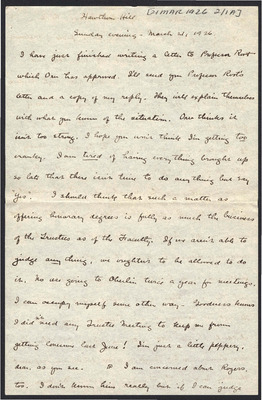 [21 MAR 1926 2/1A]
Hawthorn Hill
Sunday evening - March 21, 1926.
I have just finished writing a letter to Professor Root
which Orv has approved. I'll send you Professor Root's
letter and a copy of my reply. They will explain themselves
with what you know of the situation. Orv thinks it
isn't too strong. I hope you won't think I'm getting too
cranky. I am tired of having everything brought up
so late that there isn't time to do anything but say
Yes. I should think that such a matter, as
offering honorary degrees is fully as much the business
of the Trustees as of the Faculty. If we aren't able to
judge anything, we oughtn't to be allowed to do
it. No use going to Oberlin twice a year for meetings.
I can occupy myself some other way. Goodness knows
I didn't need any Trustee Meeting to keep me from
getting lonesome last June! I'm just a little peppery,
dear, as you see. I am concerned about Rogers,
too. I don't know him really but if I can judge